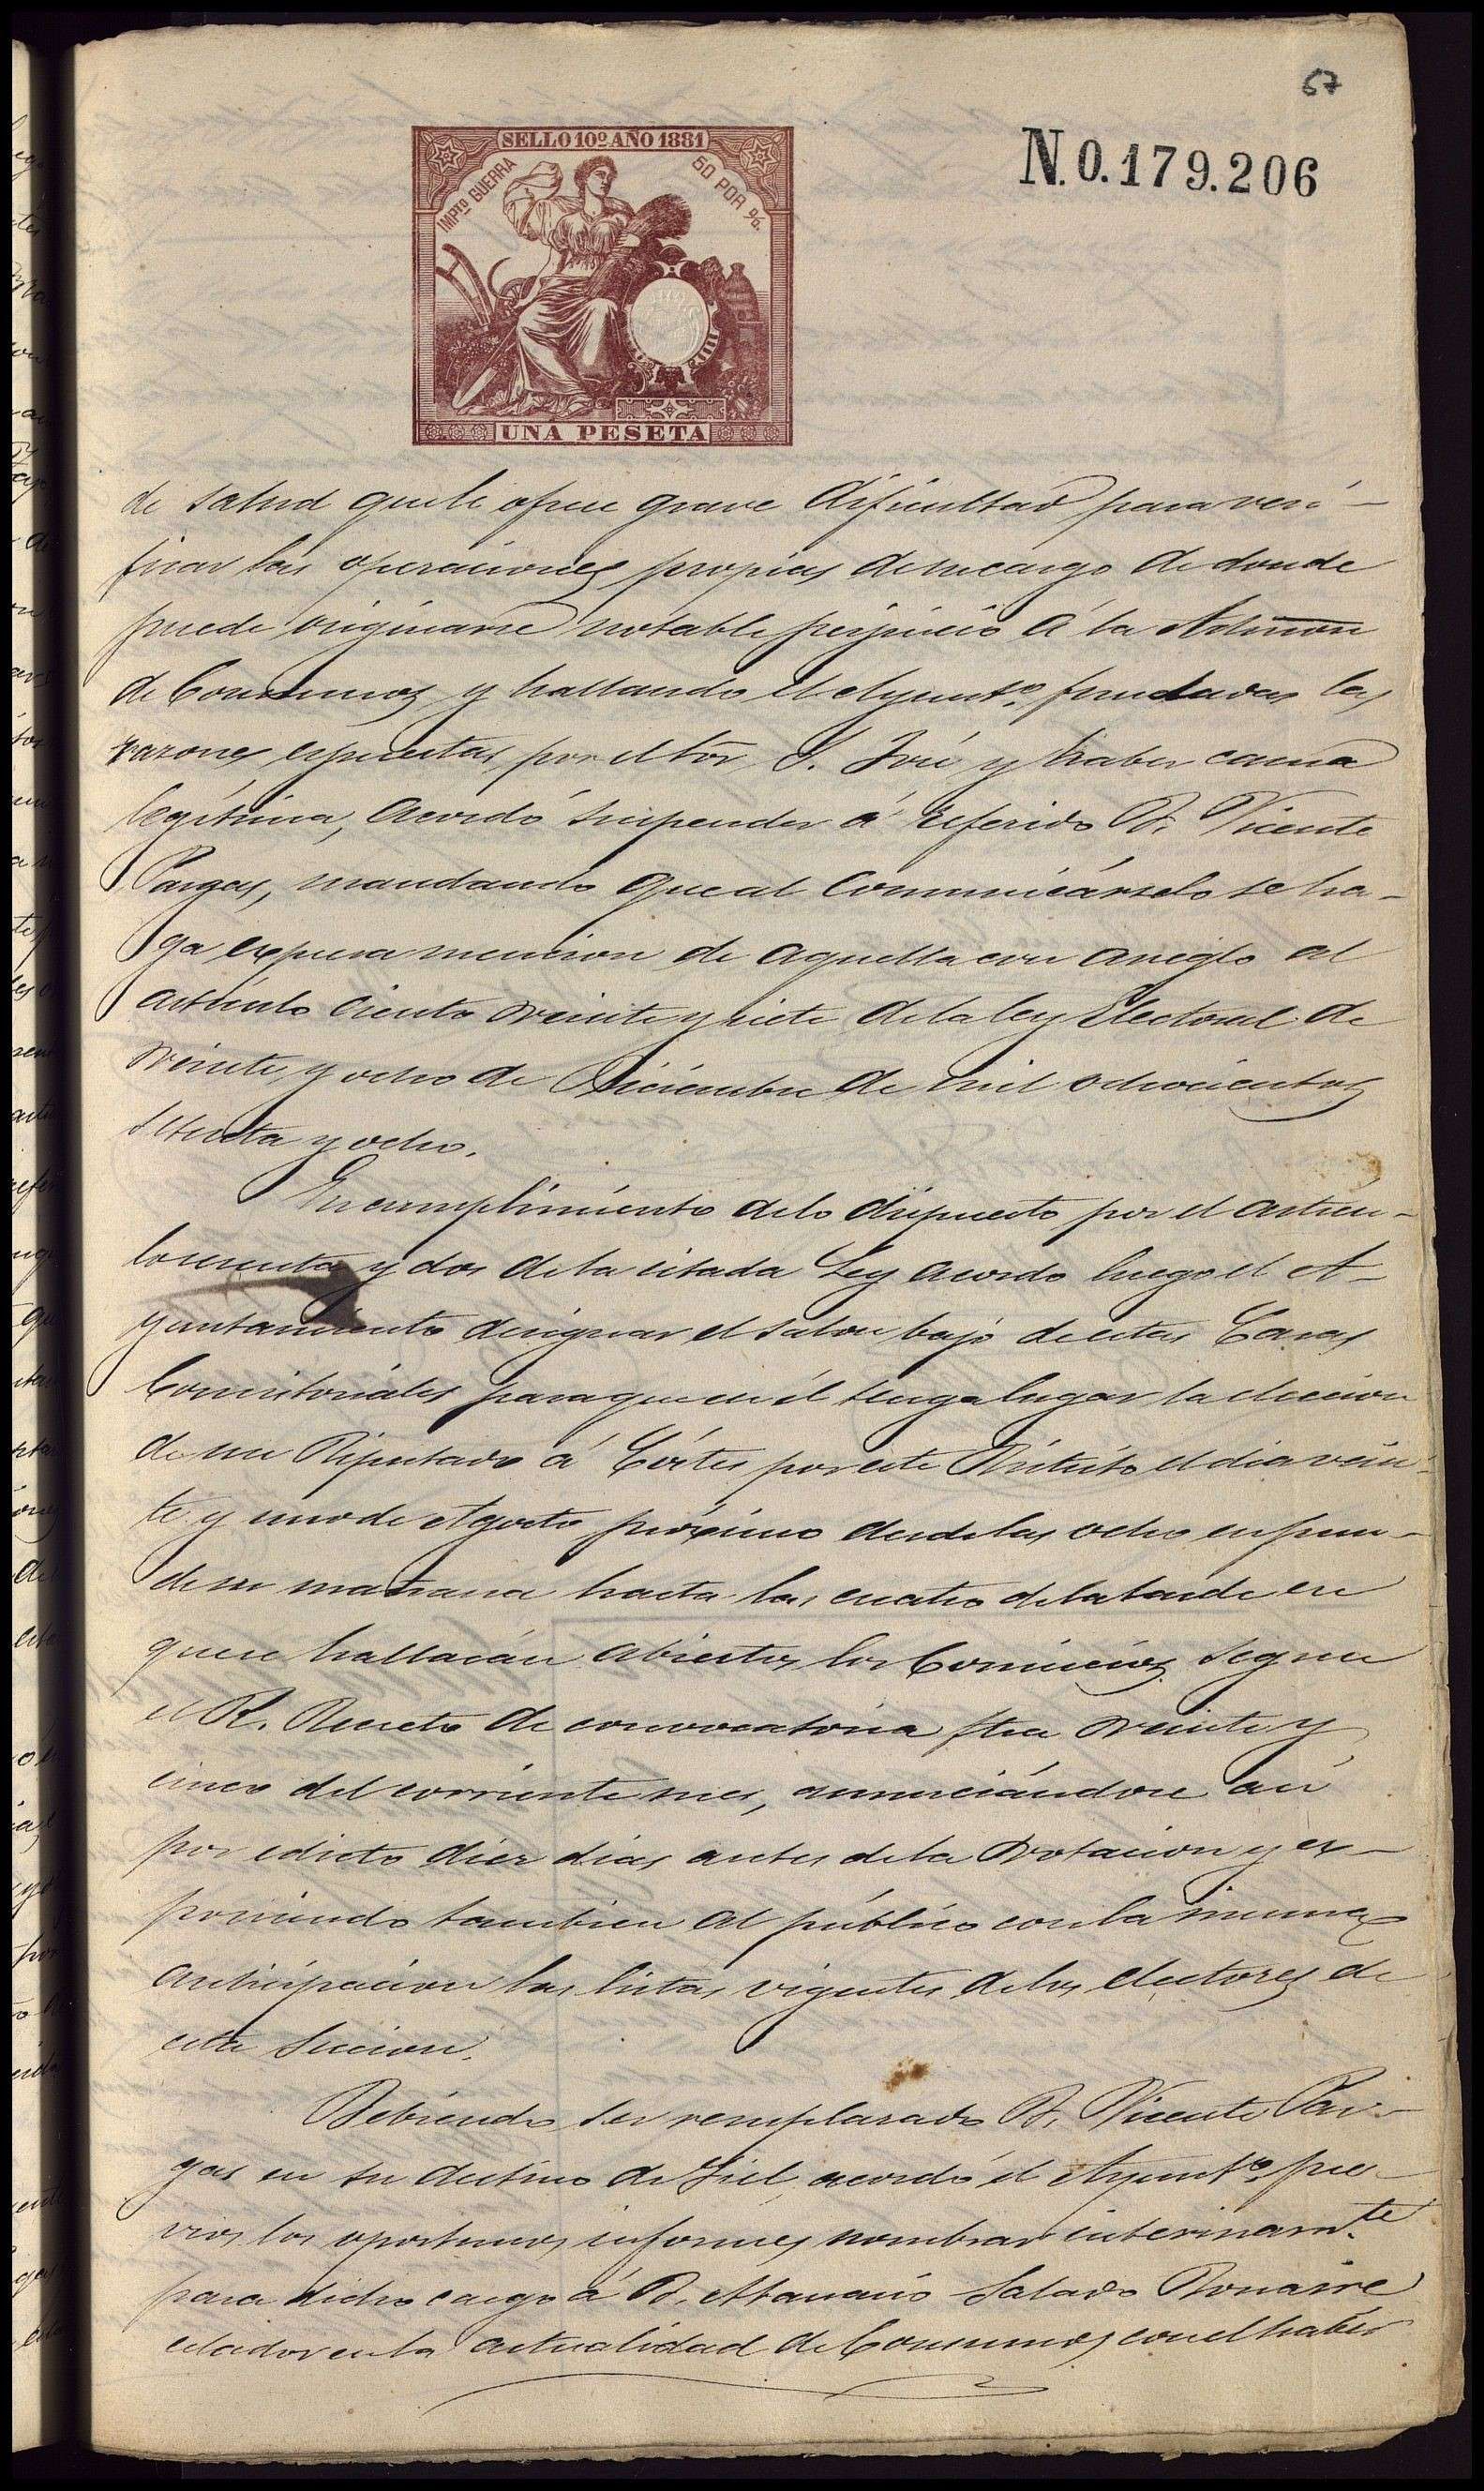 67
N.0.179.206
SELLO 10º AÑO 1881
IMPTO GUERRA
50 POR %.
UNA PESETA
de salud que le ofrece grave dificultad para veri-
ficar las operaciones propias de su cargo de donde
puede originarse notable perjuicio á la Admon
de Consumos y hallando el Ayuntº. fundadas las
razones espuestas por el Sor S. José y haber causa
legítima, acordó suspender á referido D. Vicente
Pargas, mandando que al comunicárselo se ha-
ga expresa mencion de aquella con arreglo al
artículo ciento veinte y siete de la ley Electoral de
veinte y ocho de Diciembre de mil ochocientos
setenta y ocho.
En cumplimiento de lo dispuesto por el artícu-
lo sesenta y dos de la citada Ley acordo luego el A-
yuntamiento designar el salon bajo de estas Casas
Consistoriales para que en él tenga lugar la eleccion
de un Diputado á Córtes por este Distrito el dia vein-
te y uno de Agosto próximo desde las ocho en pun-
de su mañana hasta las cuatro de la tarde en
que se hallarán abiertos los Comicios segun
el R. Decreto de convocatoria fha veinte y
cinco del corriente mes, anunciándose así
por edicto diez dias antes de la votacion y ex-
poniendo tambien al público con la misma
anticipacion las listas vigentes de los electores de
esta Seccion.
Debiendo ser remplasado D. Vicente Par-
gas en su destino de Fiel acordó el Ayuntº. pre-
vios los oportunos informes nombrar interinamte
para dicho cargo á D. Atanasio Salado
celador en la actualidad de Consumos con el haber